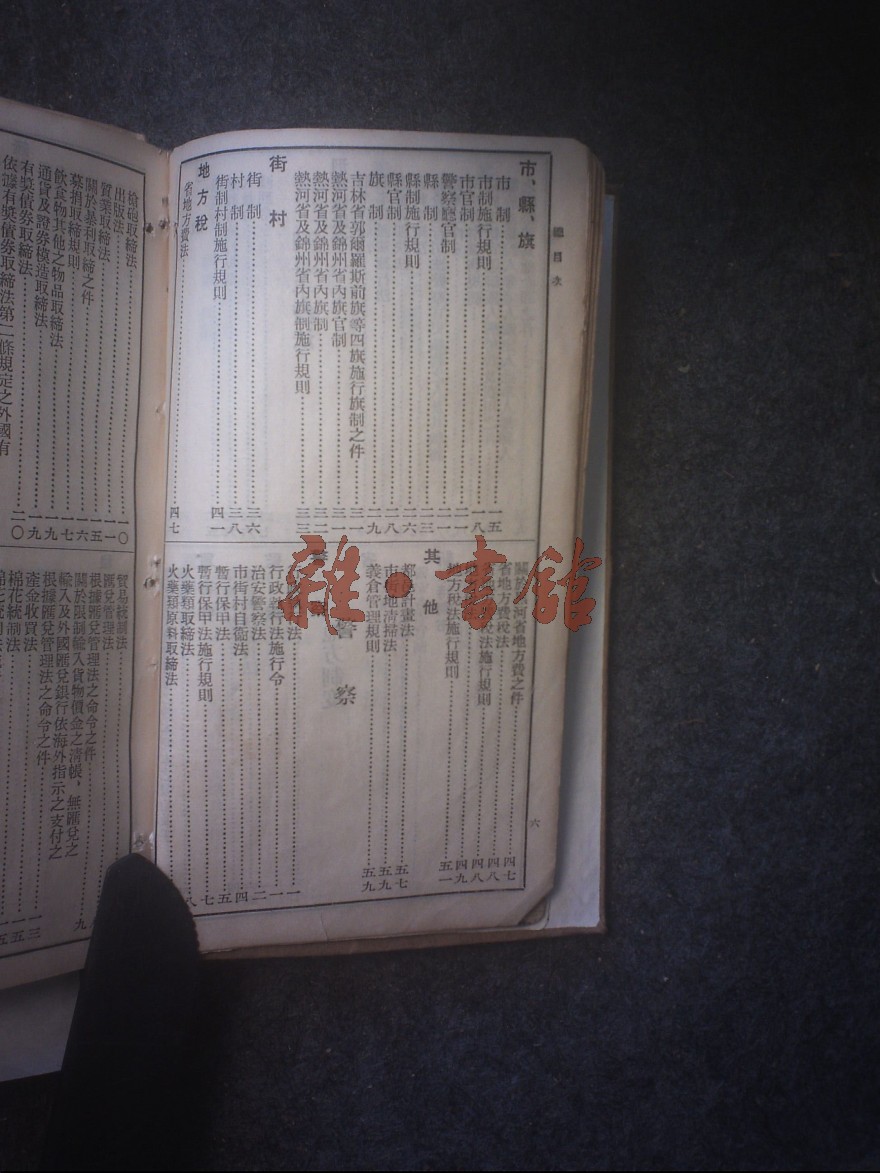 總目次
市、縣、旗
市制 一五
市制施行規則 一八
市官制 二一
警察廳官制 二一
縣制 二三
縣制施行規則 二六
縣官制 二八
旗制 二九
吉林省郭爾羅斯前旗等四旗施行旗制之件 三一
熱河省及錦州省內旗官制 三一
熱河省及錦州省內旗制 三二
熱河省及錦州省內旗制施行規則 三三
街村
街制 三六
村制 三八
街制村制施行規則 四一
地方稅
省地方費法 四七
河省地方費之件 四七
省地方費稅法 四八
稅法施行規則 四八
四九
地方稅法施行規則 五一
其他
都邑計畫法 五七
市 地清掃法 五九
義倉管理規則 五九
警察
法 一
行政執行法施行令 一
治安警察法 二
市街村自衛法 四
暫行保甲法 五
暫行保甲法施行規則 七
火藥類取締法 八
火藥類原料取締法
六
雜·書館
槍砲取締法 一〇
出版法 一一
質業取締法 一五
關於暴利取締之件 一六
募捐取締規則 一七
飲食物其他之物品取締法 一九
通貨及證券模造取締法 一九
有獎債券取締法 二〇
依據有獎債券取締法第二條規定之外國有
貿易統制法
匯兌管理法
根據匯兌管理法之命令之件
關於限制輸入貨物價金之清帳，無匯兌之
輸入及外國匯兌銀行依海外指示之支付之
根據匯兌管理法之命令之件
產金收買法
棉花統制法